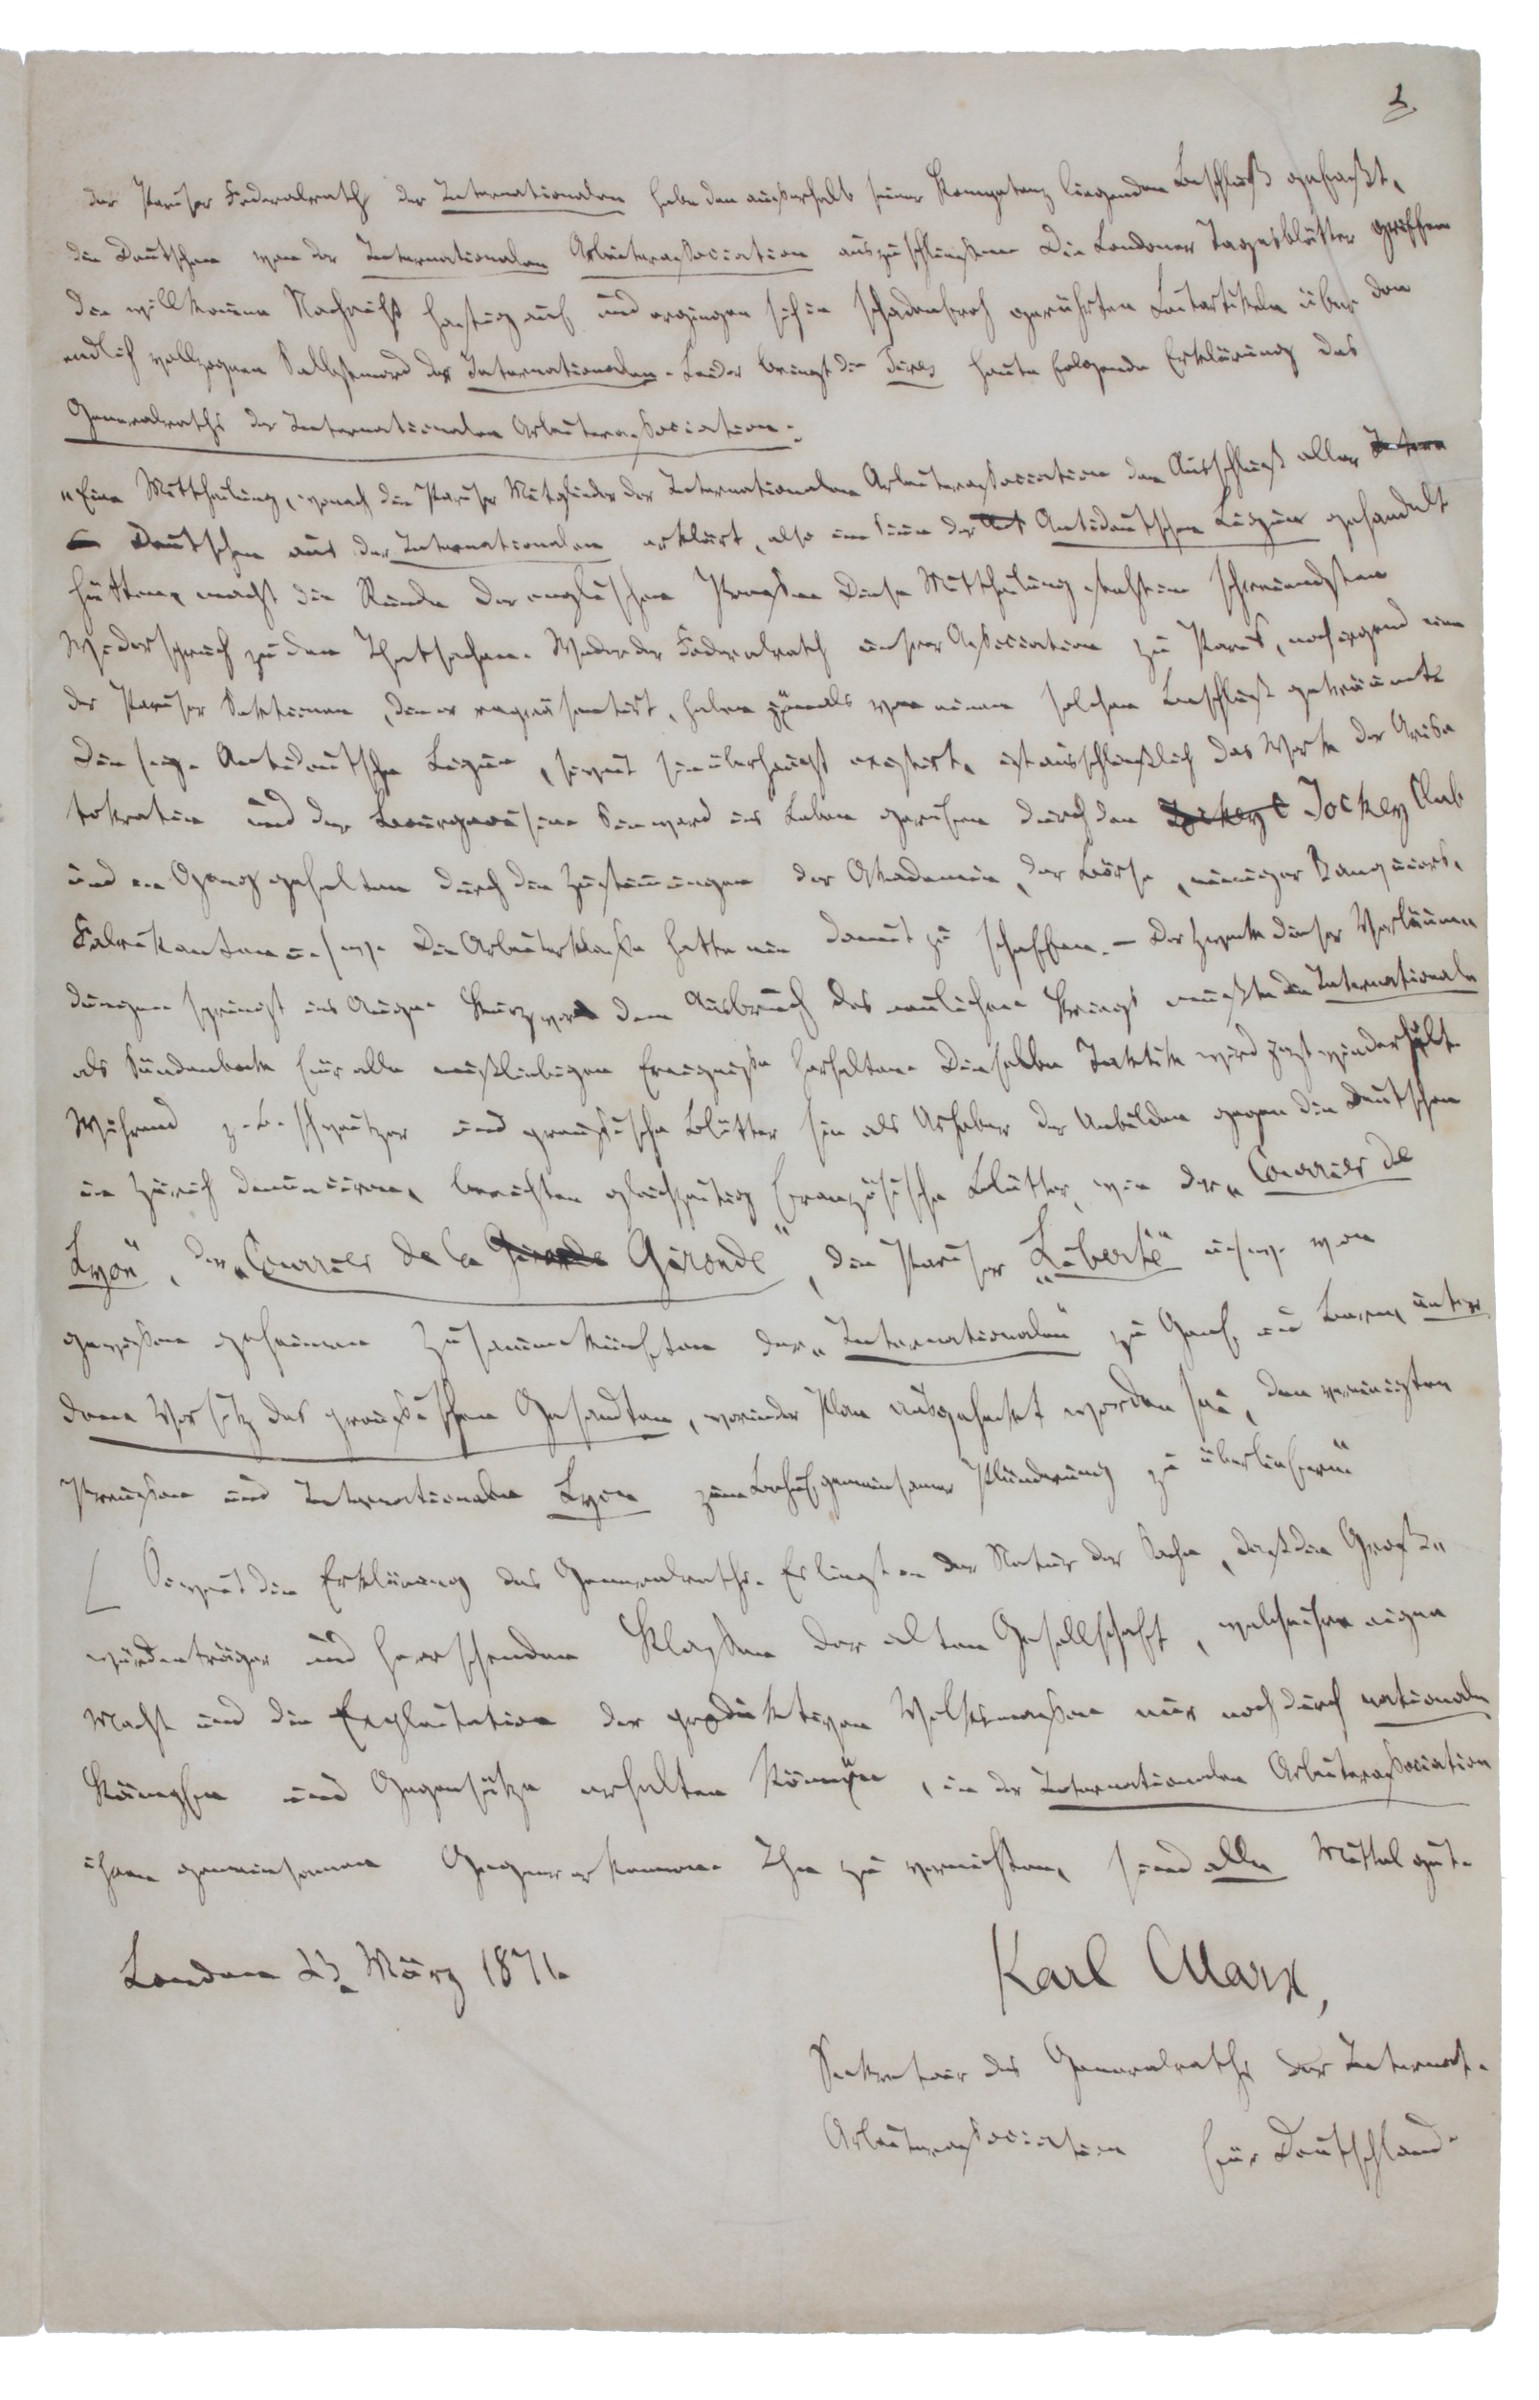 2.
der Pariser Federalrath der Internationalen habe den außerhalb seiner Kompetenz liegenden Beschluß gefaßt,
die Deutschen von der Internationalen Arbeiterassociation auszuschließen. Die Londoner Tagesblätter griffen
die willkommne Nachricht hastig auf und ergingen sich in schadenfroh gerührten Leitartikeln über den
endlich vollzognen Selbstmord der Internationalen. Leider bringt die Times heute folgende Erklärung des
Generalraths der Internationalen Arbeiterassociation:
„Eine Mittheilung, wonach die Pariser Mitglieder der Internationalen Arbeiterassociation den Ausschluß aller
Deutschen aus der Internationalen erklärt, also im Sinn der Antideutschen Ligue gehandelt
hätten, macht die Runde der englischen Presse. Diese Mittheilung steht im schreiendsten
Widerspruch zu den Thatsachen. Weder der Federalrath unsrer Association zu Paris, noch irgend eine
der Pariser Sektionen, die er repräsentirt, haben jemals von einem solchen Beschluß geträumt.
Die sog. Antideutsche Ligue, soweit sie überhaupt existirt, ist ausschließlich das Werk der Aristo
kratie und der Bourgeoisie. Sie ward ins Leben gerufen durch den Jockey Club
und im Gang gehalten durch die Zustimmungen der Akademie, der Börse, einiger Banquiers,
Fabrikanten u.s.w. Die Arbeiterklasse hatte nie damit zu schaffen. – Der Zweck dieser Verläum
dungen springt ins Auge. Kurz vor dem Ausbruch des neulichen Kriegs mußte die Internationale
als Sündenbock für alle mißliebigen Ereignisse herhalten. Dieselbe Taktik wird jetzt wiederholt.
Während z.B. schweitzer und preußische Blätter sie als Urheber der Unbilden gegen die Deutschen
in Zürich denunciren, berichten gleichzeitig französische Blätter, wie der „Courrier de
Lyon", der „Courrier de la Gironde", die Pariser „Liberté" u.s.w. von
gewissen geheimen Zusammenkünften der „Internationalen" zu Genf und Bern, unter
dem Vorsitz des preußischen Gesandten, worin der Plan ausgeheckt worden sei, den vereinigten
Preußen und Internationalen Lyon zum Behuf gemeinsamer Plünderung zu überliefern."
Soweit die Erklärung des Generalraths. Es liegt in der Natur der Sache, daß die Groß-
würdenträger und herrschenden Klassen der alten Gesellschaft, welche ihre eigne
Macht und die Exploitation der produktiven Volksmassen nur noch durch nationale
Kämpfe und Gegensätze erhalten können, in der Internationalen Arbeiterassociation
ihren gemeinsamen Gegner erkennen. Ihn zu vernichten, sind alle Mittel gut.
London 23. März 1871.
Karl Marx,
Sekretair des Generalraths der Internat.
Arbeiterassociation für Deutschland.